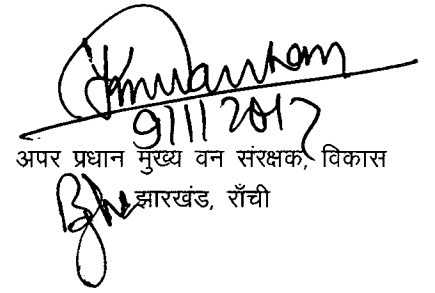 9/11/2017
अपर प्रधान मुख्य वन संरक्षक, विकास
झारखंड, राँची